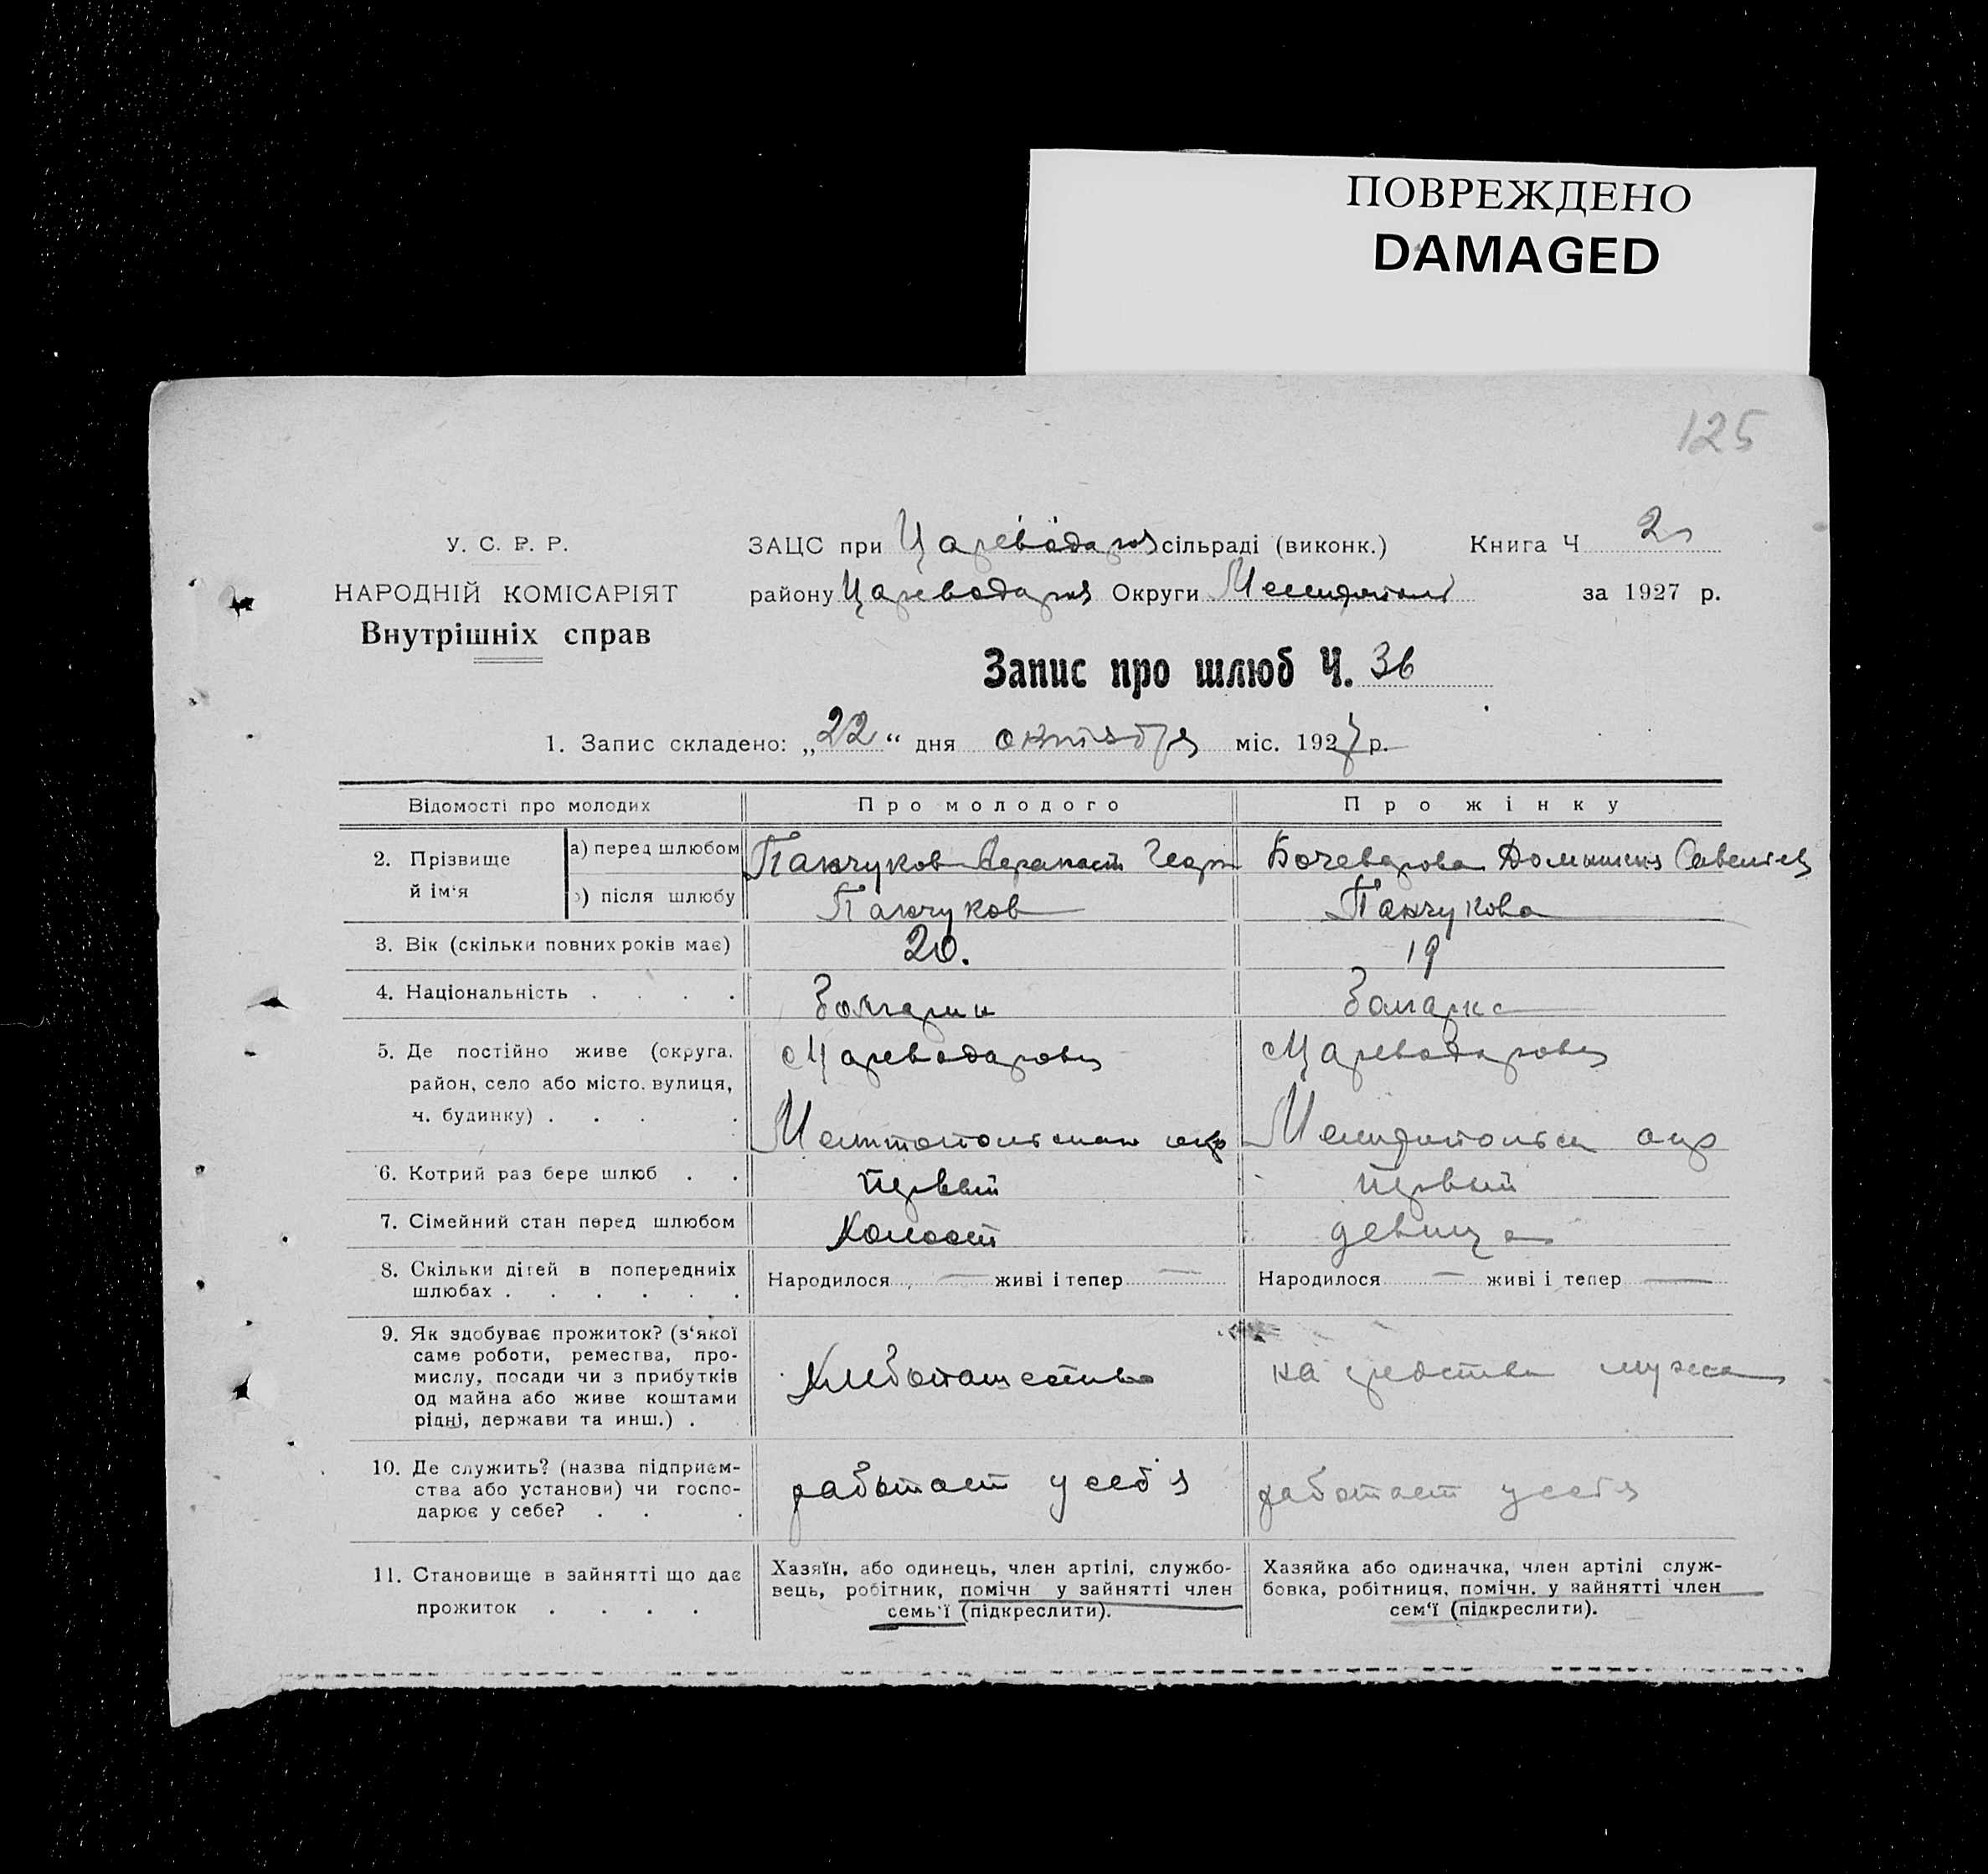 ПОВРЕЖДЕНО
DAMAGED
125
У. С. Р. Р.
НАРОДНІЙ КОМІСАРІЯТ
Внутрішніх справ
ЗАЦС при Цареводаров сільраді (виконк.) Книга Ч 2
району Цареводаров Округи за 1927 р.
Запис про шлюб Ч. 36
1. Запис складено: „22“ дня октября міс. 1927 р.
Відомості про молодих Про молодого Про жінку
2. Прізвище й ім‘я
а) перед шлюбом Панчуков Георг Бочеварова Савельев
б) після шлюбу Панчуков Панчукова
3. Вік (скільки повних років має) 20. 19
4. Національність . . . . болгарин болгарка
5. Де постійно живе (округа, район, село або місто, вулиця, ч. будинку) . . . .
Цареводаровка Цареводаровка
Мелитопольская окр Мелитопольск окр
6. Котрий раз бере шлюб . . первый первый
7. Сімейний стан перед шлюбом холост девица
8. Скільки дітей в попередніх шлюбах . . . . . . Народилося — живі і тепер — Народилося — живі і тепер —
9. Як здобуває прожиток? (з‘якої саме роботи, ремества, промислу, посади чи з прибутків од майна або живе коштами рідні, держави та инш.) .
Хлебопашество на средства мужа
10. Де служить? (назва підприємства або установи) чи господарює у себе? . . .
работает у себя работает у себя
11. Становище в зайнятті що дає прожиток . . . .
Хазяїн, або одинець, член артілі, службовець, робітник, помічн у зайнятті член семь‘ї (підкреслити).
Хазяйка або одиначка, член артілі службовка, робітниця, помічн. у зайнятті член сем‘ї (підкреслити).